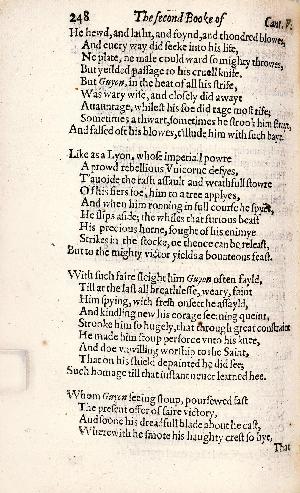 248 The second Booke of Cant. V.
He hewd, and lasht, and foynd, and thondred blowes,
And euery way did seeke into his life,
Ne plate, ne male could ward so mighty throwes,
But yeilded passage to his cruell knife.
But Guyon, in the heat of all his strife,
Was wary wife, and closely did awayt
Auauntage, whilest his foe did rage most rife;
Sometimes a thwart, sometimes he strook him strayt,
And falsed oft his blowes, t'illude him with such bayt.
Like as a Lyon, whose imperiall powre
A prowd rebellious Vnicorne defyes,
T'auoide the rash assault and wrathfull stowre
Of his fiers foe, him to a tree applyes,
And when him ronning in full course he spyes,
He slips aside; the whiles that furious beast
His precious horne, sought of his enimyes
Strikes in the stocke, ne thence can be releast,
But to the mighty victor yields a bounteous feast.
With such faire sleight him Guyon often fayld,
Till at the last all breathlesse, weary, faint
Him spying, with fresh onsett he assayld,
And kindling new his corage seeming queint,
Strooke him so hugely, that through great constraint
He made him stoup perforce vnto his knee,
And doe vnwilling worship to the Saint,
That on his shield depainted he did see;
Such homage till that instant neuer learned hee.
Whom Guyon seeing stoup, poursewed fast
The present offer of faire victory,
And soone his dreadfull blade about he cast,
Wherewith he smote his haughty crest so hye,
That